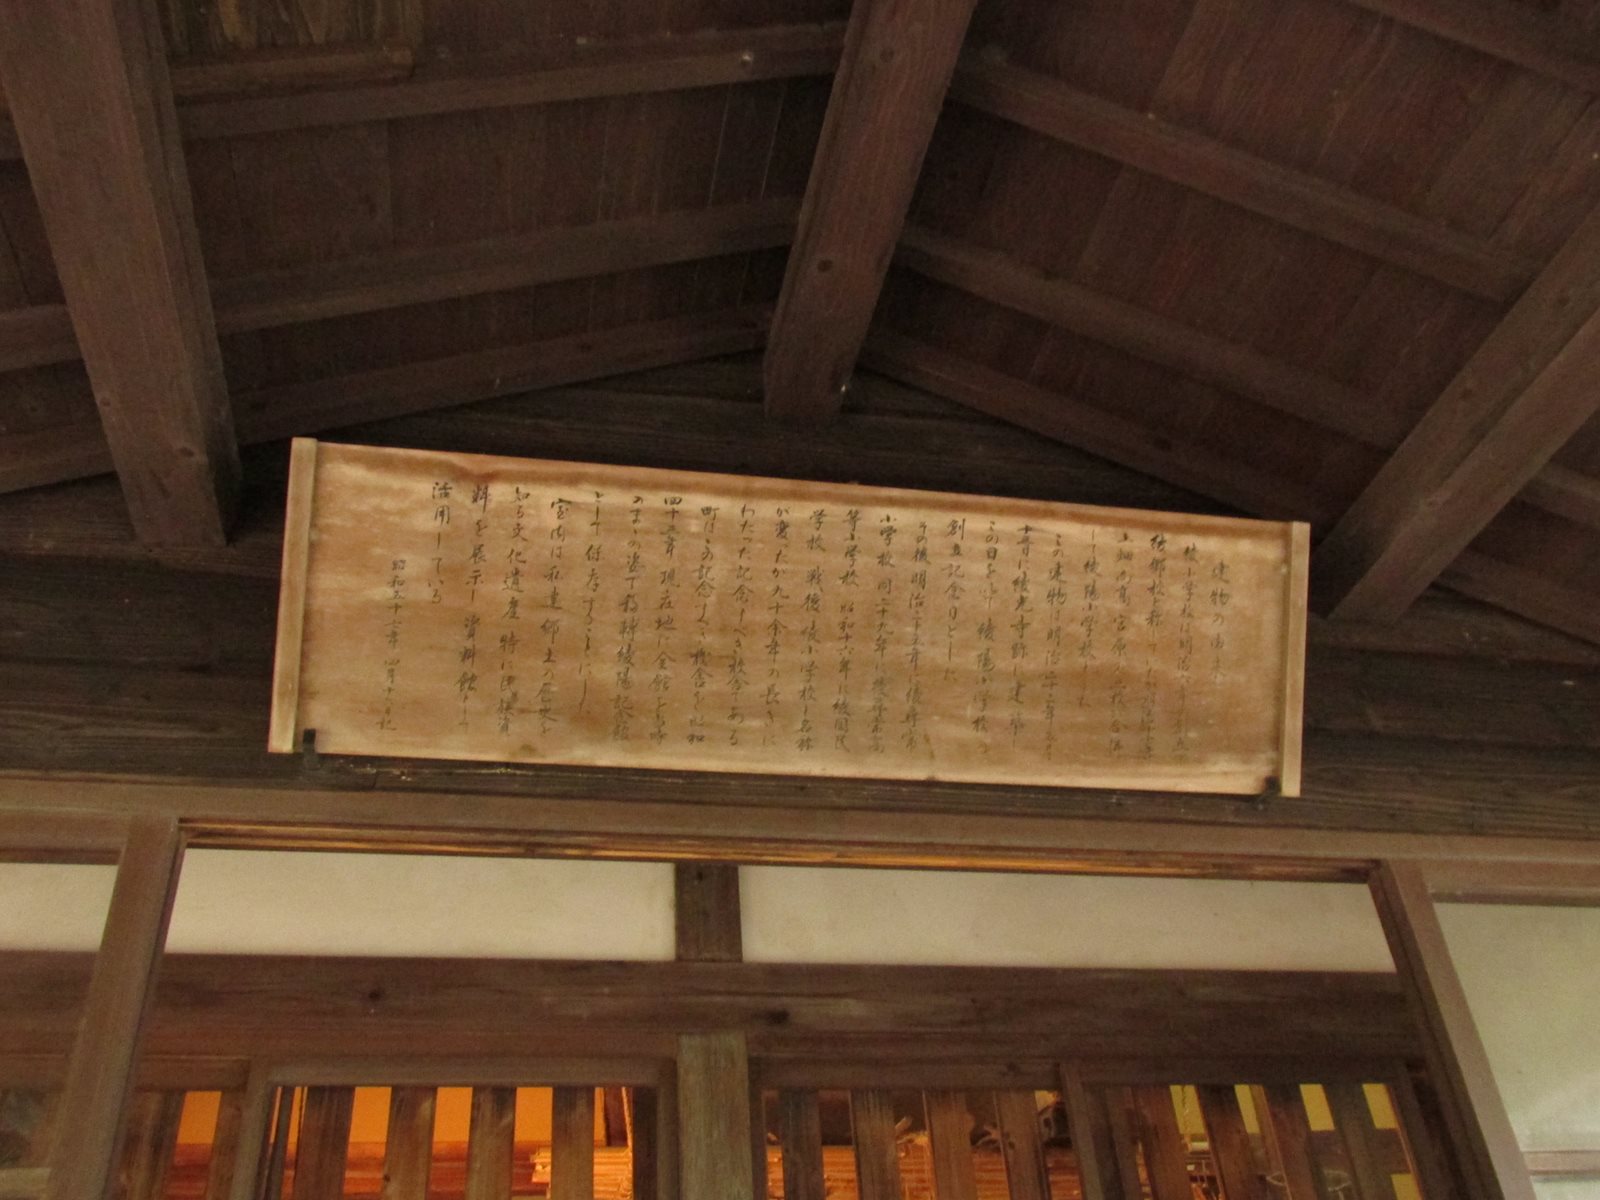 建物の由来
綾小学校は明治
綾郷校と称していたが
上畑 尚 宮原小学校を合併
して綾陽小学校とした
この建物は明治二十二年
十一日に綾光寺跡に建築し
この日を 綾陽小学校の
創立記念日とした
その後明治二十五年に綾尋常
小学校 同二十九年に綾尋常高
等小学校 昭和十六年に綾国民
学校 戦後綾小学校と名称
が変ったが九十余年の長きに
わたった記念すべき校舎である
町はこの記念すべき校舎を昭和
四十三年現在地に全館を当時
のままの姿で移転綾陽記念館
として保存することにした
室内は私達郷土の歴史を
知る文化遺産 特に民俗資
料を展示し資料館として
活用している
昭和五十七年 四月十日記